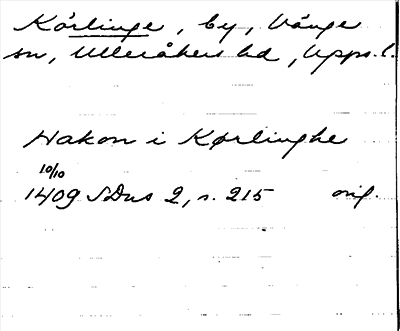 Kårlinge, by, Vänge
sn, Ulleråkers hd, Upps. l.
Hakon i Kørlinghe
10/10
1409 SDns 2, s. 215 orig.